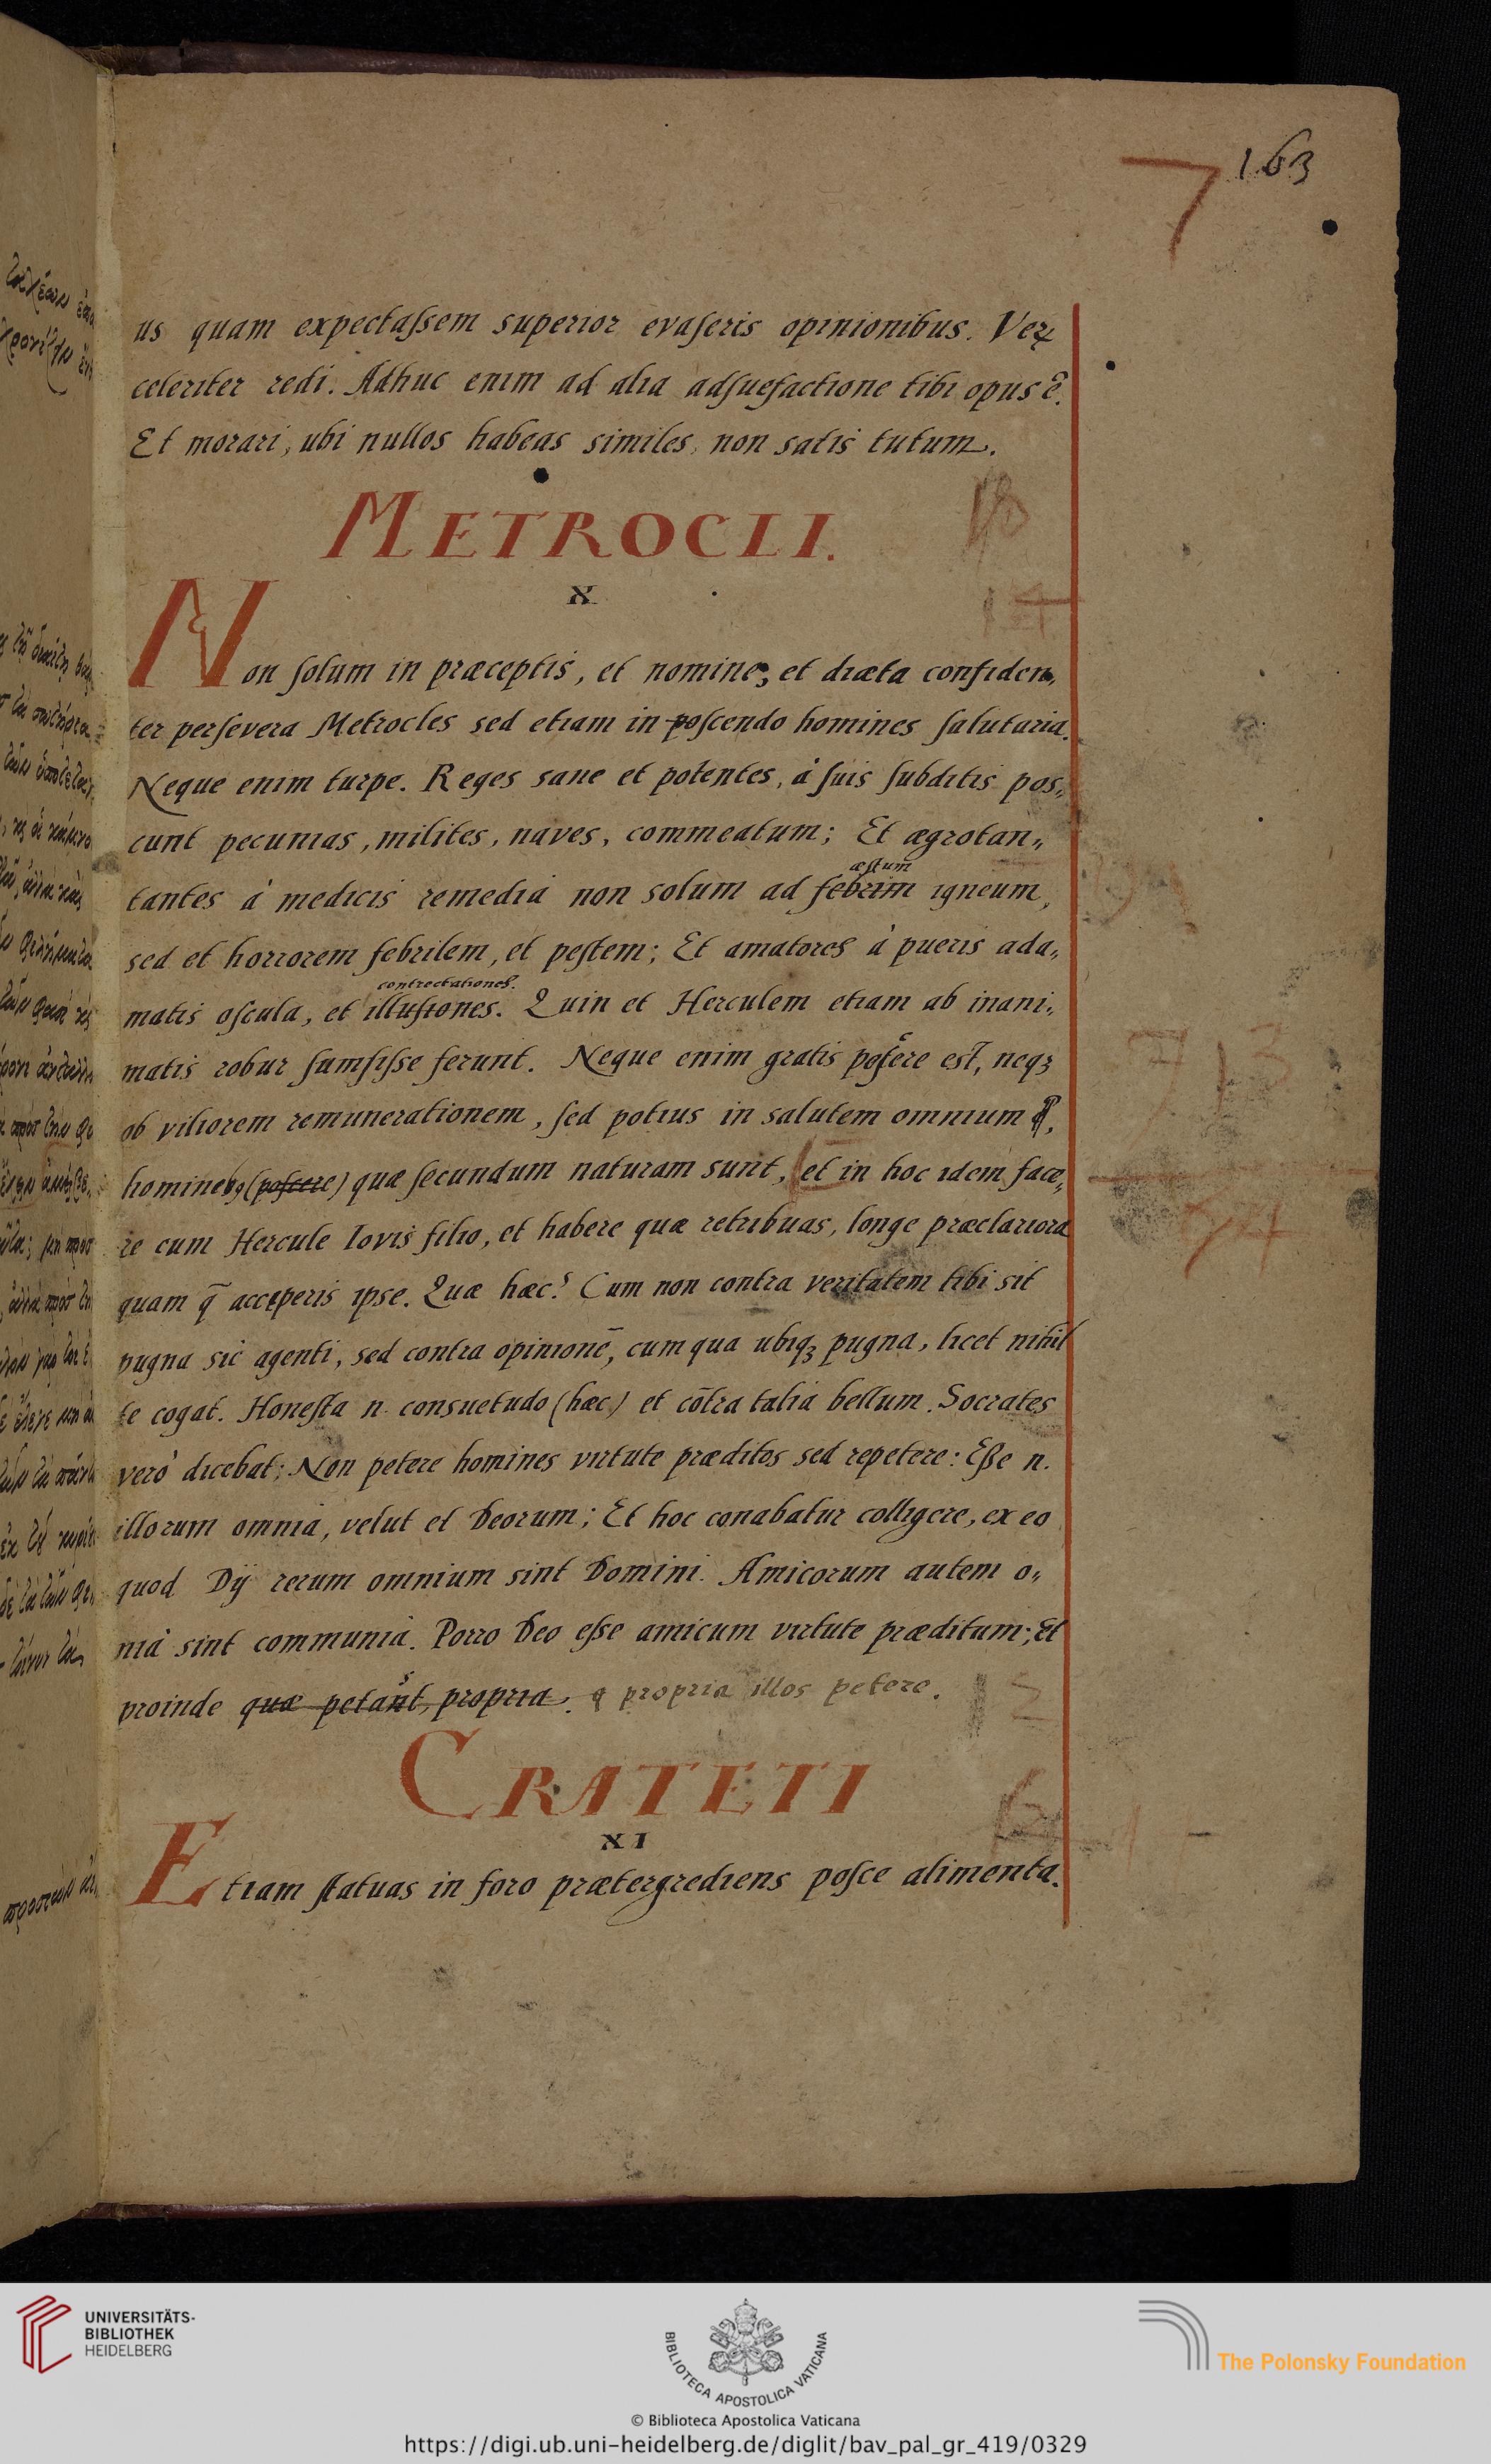 163
7
us quam expectaſsem superior evaſeris opinionibus. Verꝝ
celeriter redi. Adhuc enim ad alia adſuefactione tibi opus ē.
Et morari, ubi nullos habeas similes, non satis tutum.
METROCLI.
18
X
14
Non ſolum in præceptis, et nomine, et diæta confiden„
ter perſevera Metrocles sed etiam in poſcendo homines ſalutaria.
Neque enim turpe. Reges sane et potentes, à ſuis ſubditis pos„
cunt pecunias, milites, naves, commeatum; Et ægrotan„
æſtum
tantes à medicis remedia non solum ad febrim igneum,
sed et horrorem febrilem, et peſtem; Et amatores à pueris ada„
contrectationes.
matis oſcula, et illuſiones. Quin et Herculem etiam ab inani„
matis robur ſumſiſse ferunt. Neque enim gratis petere est, neqꝫ
ob viliorem remunerationem, ſed potius in salutem omnium
(poſcere) quæ ſecundum naturam sunt, et in hoc idem face„
re cum Hercule Iovis filio, et habere quæ retribuas, longe præclariora
quam q̄ acceperis ipse. Quæ hæc? Cum non contra veritatem tibi sit
pugna sic agenti, sed contra opinionē, cum qua ubiqꝫ pugna, licet nihil
te cogat. Honeſta n. consuetudo (hæc) et cōtra talia bellum. Socrates
verò dicebat; Non petere homines virtute præditos sed repetere: Eſse n.
illorum omnia, velut et Deorum; Et hoc conabatur colligere, ex eo
quod Dij rerum omnium sint Domini. Amicorum autem o„
nia sint communia. Porro Deo eſse amicum virtute præditum; Et
proinde quæ petant, propria. propria illos petere.
CRATETI
XI
Etiam ſtatuas in foro prætergrediens poſce alimenta.
UNIVERSITÄTS-
BIBLIOTHEK
HEIDELBERG
BIBLIOTECA APOSTOLICA VATICANA
The Polonsky Foundation
© Biblioteca Apostolica Vaticana
https://digi.ub.uni-heidelberg.de/diglit/bav_pal_gr_419/0329